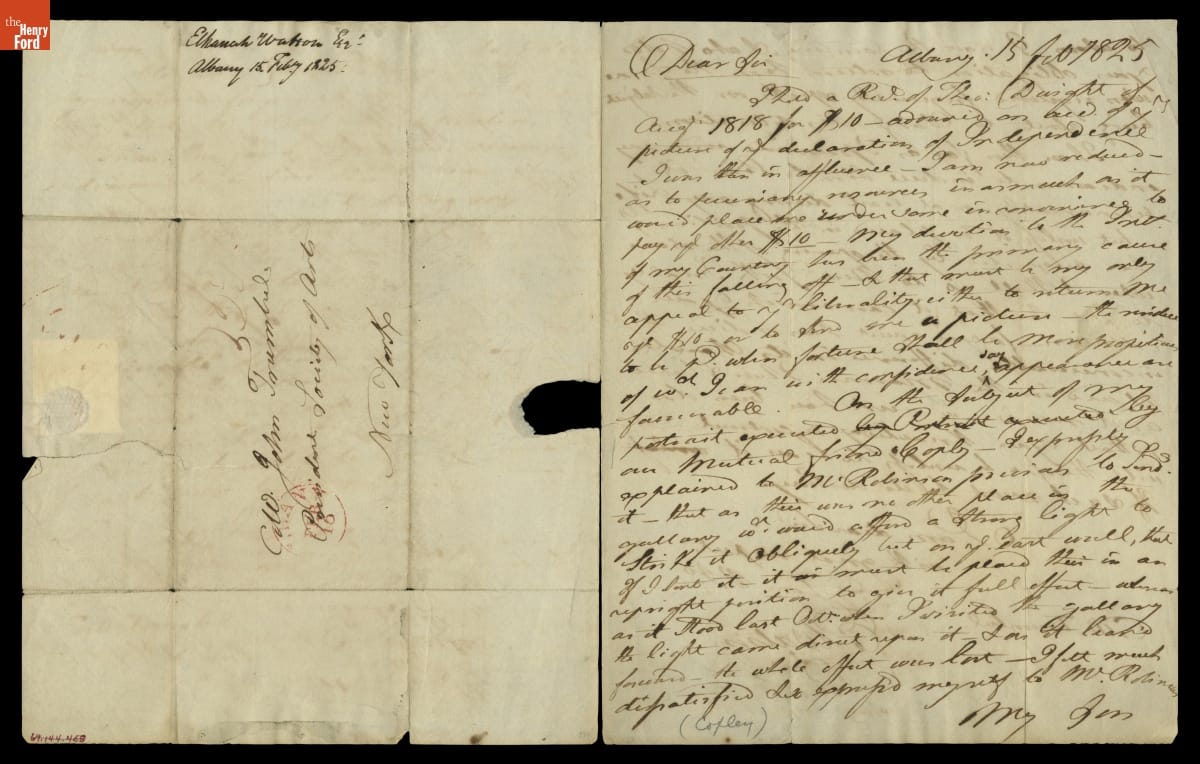 the
Henry
Ford
Elkanah Watson Esqr
Albany 15 Feby 1825.
Col. John Trumbul
President Society of Arts
New York
64.144.468
Dear Sir Albany. 15 Feb 1825
I hold a Rect. of Theo: Dwight of
Augt 1818 for $10 - advanced on acct. of yr
picture of ye declaration of Independence
I was then in affluence - I am now reduced -
as to pecuniary resources in as much as it
would place me under some inconvenience to
pay ye other $10 - My devotion to the Intt.
of my Country has been the primary cause
of this falling off - & that must be my only
appeal to yr liberality either to return me
ye $10 - or to send me a picture - the residue
to be Pd. when fortune shall be more propitious
of wh. I can with confidence say appearances are
favourable. On the Subject of my
portrait executed by
our Mutual friend Copley - I expressly
explained to Mr Robinson previous to Send.
it - that as there was no other place in the
gallary wh. would afford a Strong light to
Strike it Obliquely but on ye east wall, that
if I sent it - it must be placed there in an
upright position to give it full effect - whereas
as it stood last Octr. when I visited the gallary
the light came direct upon it - & as it leaned
forward - the whole effect was lost - I felt much
dissatisfied & expressed myself to Mr. Robinson
My Son
(Copley)